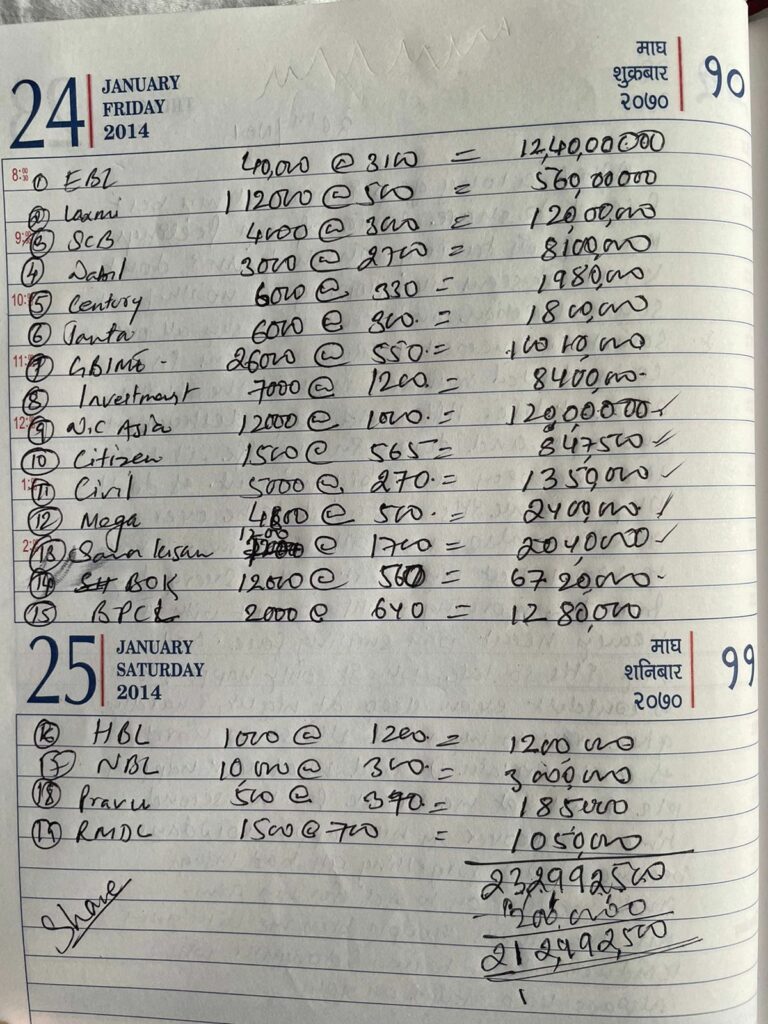 24 JANUARY FRIDAY 2014 माघ शुक्रबार २०७० १०
8:00
① EBL 40,000 @ 3100 = 12,40,00,000
② Laxmi 112000 @ 500 = 560,00000
③ SCB 4000 @ 3000. = 120,00,000
④ Nabil 3000 @ 2700 = 8100,000
⑤ Century 6000 @ 330 = 1980,000
⑥ Janta 6000 @ 300. = 1800,000
⑦ GBIME - 26000 @ 550. =
⑧ Investment 7000 @ 1200. = 8400,000-
⑨ NIC Asia 12000 @ 1000. = 120,00000 ✓
⑩ Citizen 1500 @ 565 = 847,500 ✓
⑪ Civil 5000 @ 270. = 1350,000 ✓
⑫ Mega 4800 @ 500. = 2400,000 ✓
⑬ Sana Kisan 1200 @ 1700 = 2040,000 ✓
⑭ BOK 12000 @ 560 = 6720,000-
⑮ BPCL 2000 @ 640 = 1280,000
25 JANUARY SATURDAY 2014 माघ शनिबार २०७० ११
⑯ HBL 1000 @ 1200. = 1200 000
⑰ NBL 10000 @ 300. = 3000,000
⑱ Pravu 500 @ 370. = 185000
⑲ RMDC 1500 @ 700 = 1050,000
232992,500
Share
212,492,500